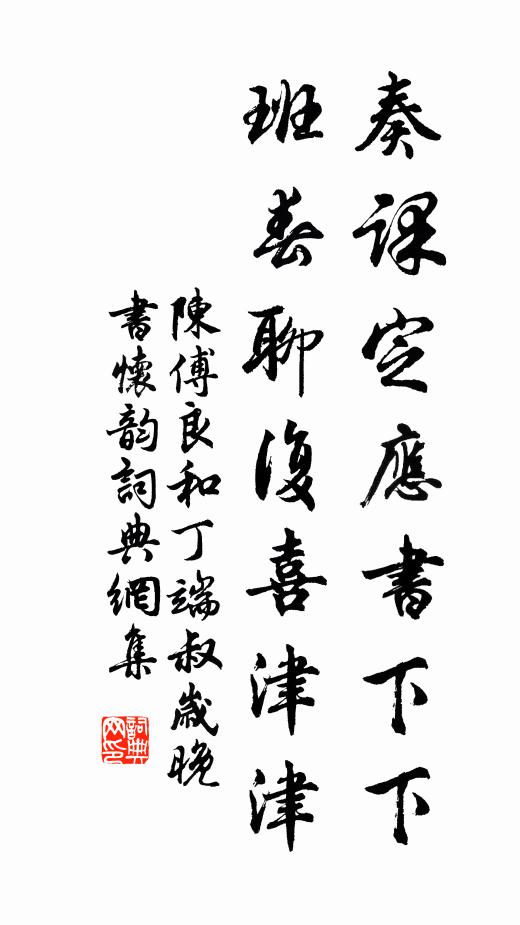 奏課定應書下下
班春聊復喜津津
陳傅良和丁端叔歲晚
書懷韵詞典網集
詞典網印